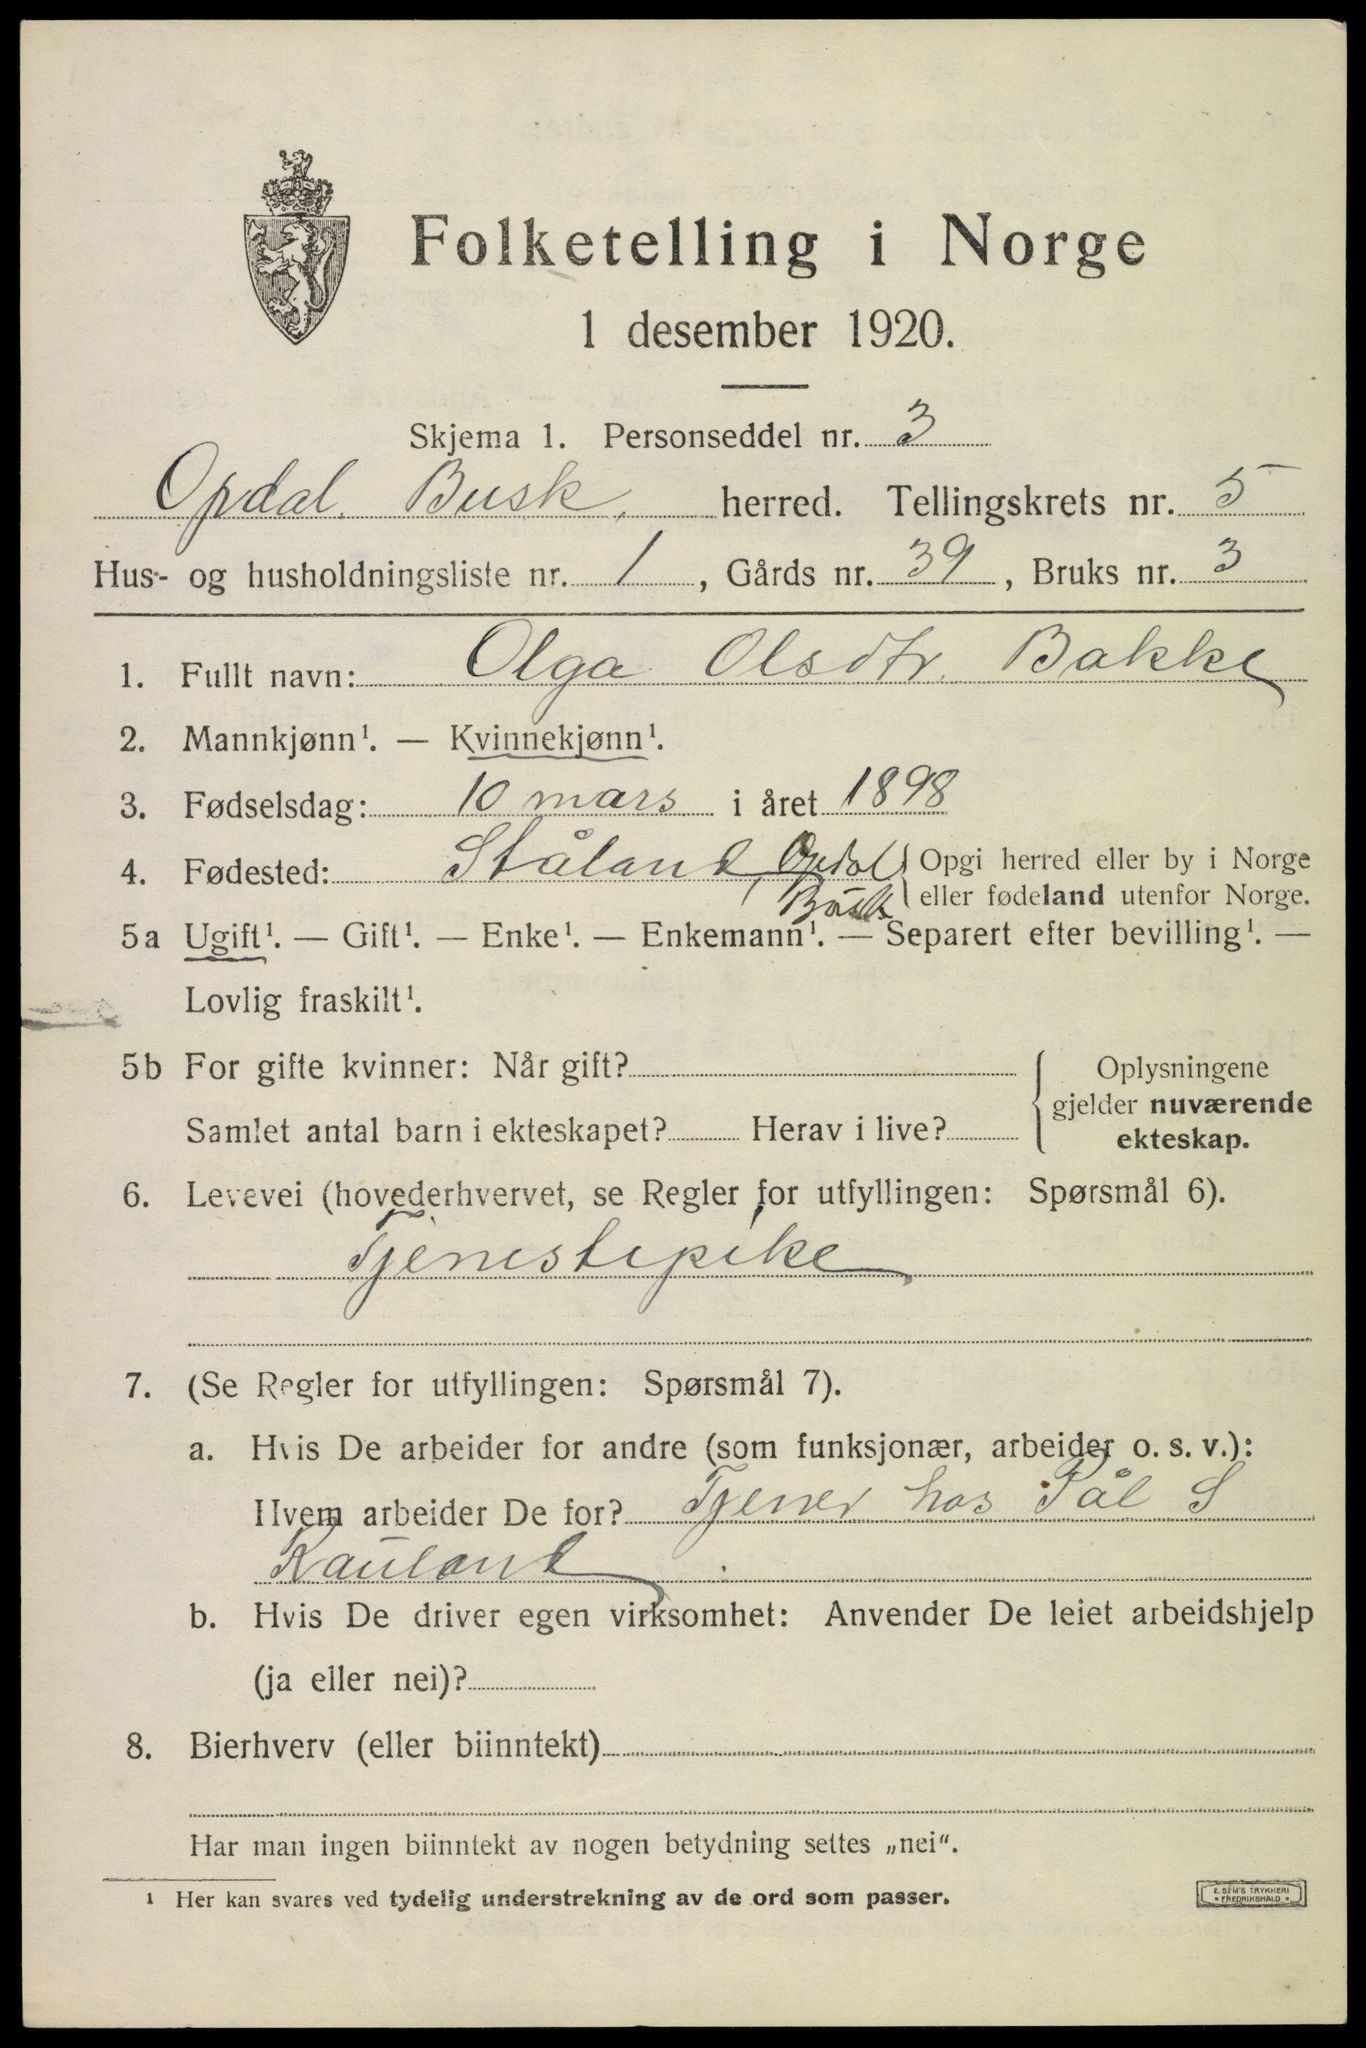 Folketelling i Norge
1 desember 1920.
Skjema 1. Personseddel nr. 3
Opdal. Busk. herred. Tellingskrets nr. 5
Hus- og husholdningsliste nr. 1, Gårds nr. 39, Bruks nr. 3
1. Fullt navn: Olga Olsdtr. Bakke
2. Mannkjønn¹. — Kvinnekjønn¹.
3. Fødselsdag: 10 mars i året 1898
4. Fødested: Ståland, Opdal Opgi herred eller by i Norge
Busk eller fødeland utenfor Norge.
5a Ugift¹. — Gift¹. — Enke¹. — Enkemann¹. — Separert efter bevilling¹. —
Lovlig fraskilt¹.
5b For gifte kvinner: Når gift? Oplysningene
gjelder nuværende
Samlet antal barn i ekteskapet? Herav i live?
ekteskap.
6. Levevei (hovederhvervet, se Regler for utfyllingen: Spørsmål 6).
Tjenestepike
7. (Se Regler for utfyllingen: Spørsmål 7).
a. Hvis De arbeider for andre (som funksjonær, arbeider o. s. v.):
Hvem arbeider De for? Tjener hos Pål S
Kauland
b. Hvis De driver egen virksomhet: Anvender De leiet arbeidshjelp
(ja eller nei)?
8. Bierhverv (eller biinntekt)
Har man ingen biinntekt av nogen betydning settes „nei“.
¹ Her kan svares ved tydelig understrekning av de ord som passer.
E. SEM'S TRYKKERI
• FREDRIKSHALD •